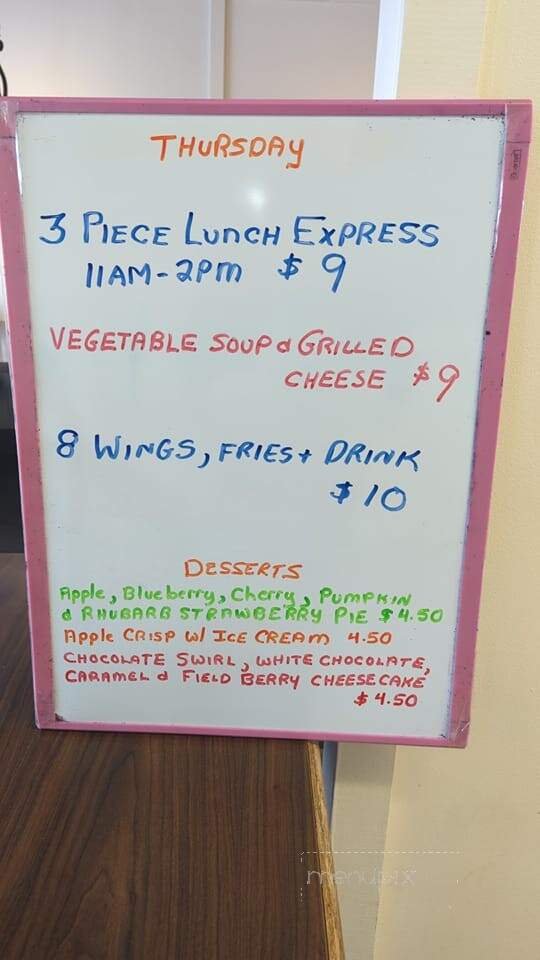 THURSDAY
3 PIECE LUNCH EXPRESS
11AM-2PM $9
VEGETABLE SOUP & GRILLED
CHEESE $9
8 WINGS, FRIES + DRINK
$10
DESSERTS
Apple, Blueberry, Cherry, PUMPKIN
& RHUBARB STRAWBERRY PIE $4.50
Apple CRISP W/ ICE CREAM 4.50
CHOCOLATE SWIRL, WHITE CHOCOLATE,
CARAMEL & FIELD BERRY CHEESECAKE
$4.50
menupix